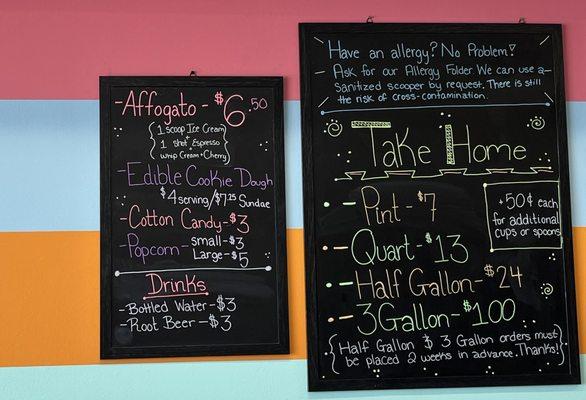 -Affogato - $6.50
{1 scoop Ice Cream
+
1 shot Espresso
whip Cream + Cherry}
-Edible Cookie Dough
$4 serving/$7.25 Sundae
-Cotton Candy - $3
-Popcorn - small - $3
Large - $5
Drinks
-Bottled Water - $3
-Root Beer - $3
Have an allergy? No Problem!
Ask for our Allergy Folder. We can use a
Sanitized scooper by request. There is still
the risk of cross-contamination.
Take Home
- Pint - $7
- Quart - $13
- Half Gallon - $24
- 3 Gallon - $100
+50¢ each
for additional
cups or spoons
{Half Gallon & 3 Gallon orders must
be placed 2 weeks in advance. Thanks!}